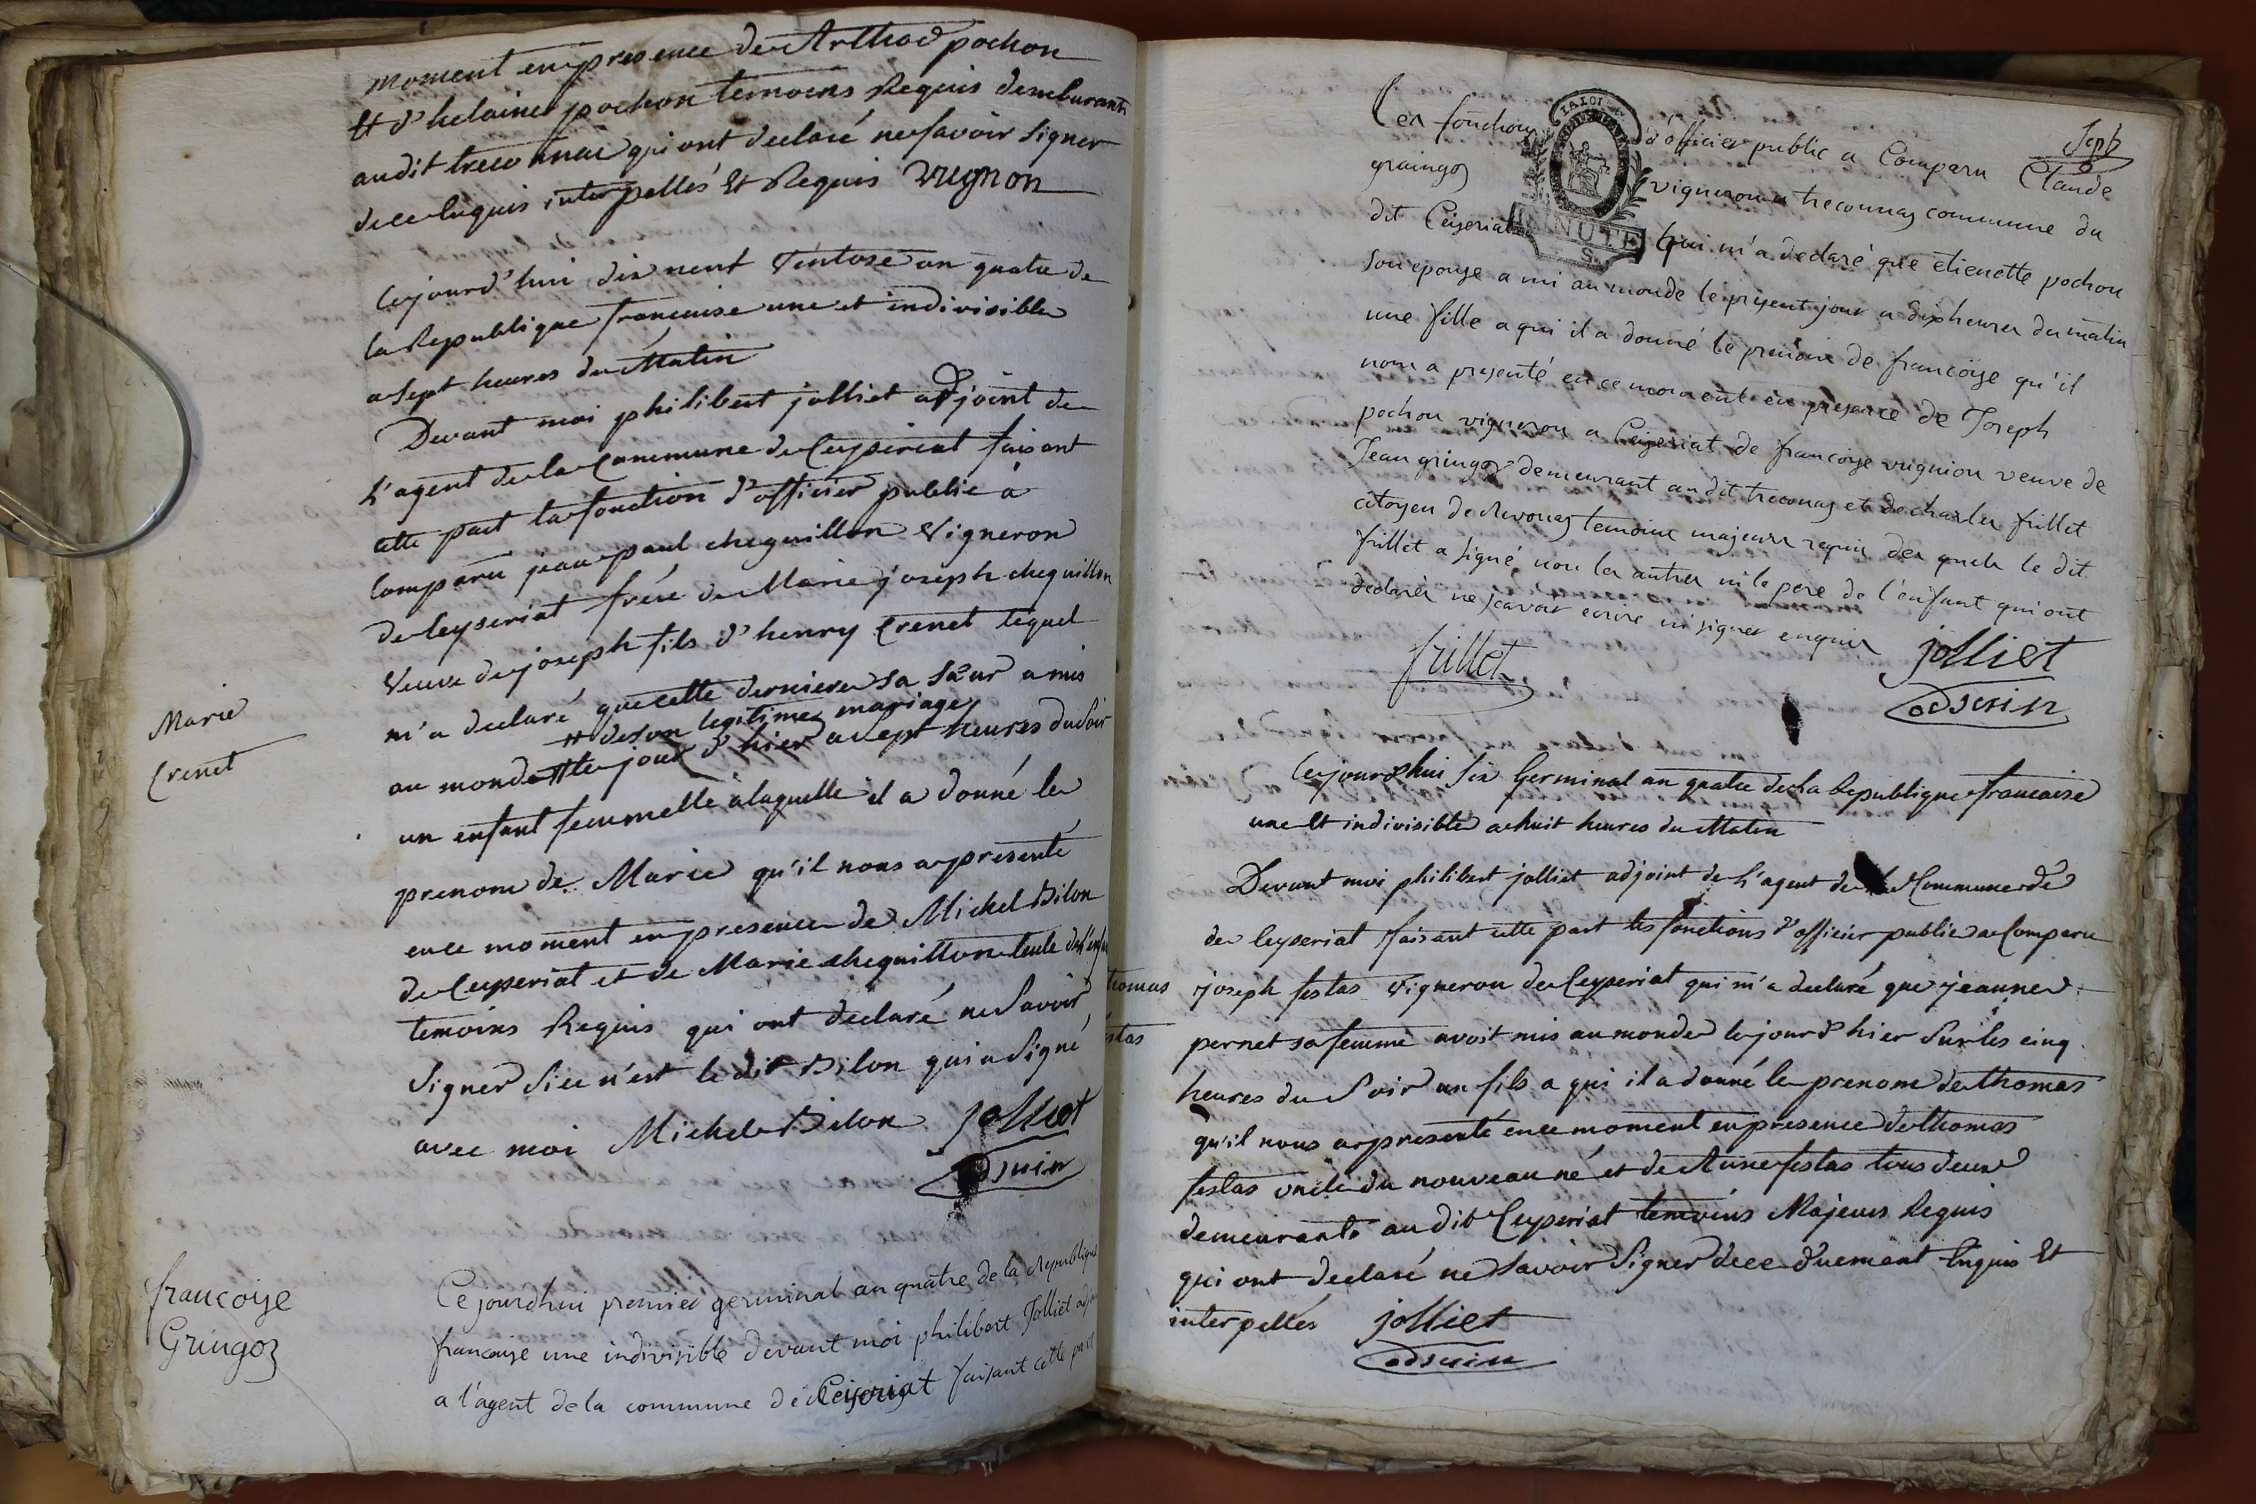 moment en presence de Arthod pochon
Et d'helaine pochon temoins Requis demeurants
au dit treconnac qui ont declaré ne savoir signer
de ce enquis interpellés Et Requis vugnon
Cejourd'hui dix neuf Ventose an quatre de
la Republique francaise une et indivisible
a sept heures du Matin
Devant moi philibert jolliet adjoint de
L'agent de la Commune de Ceyseriat faisant
cette part la fonction d'officier public à
Comparu jean paul chequillon Vigneron
de Ceyseriat frére de Marie joseph chequillon
Veuve de joseph fils d'henry Crenet lequel
m'a declaré que cette derniere sa sœur a mis
# de son legitime mariage
au monde # le jour d'hier a sept heures du soir
Marie
Crenet
un enfant femmelle a laquelle il a donné le
prenom de Marie qu'il nous a presenté
en ce moment en presence de Michel Bilon
de Ceyseriat et de Marie chequillon tente de l'enfan
temoins Requis qui ont declaré ne Savoir
Signer Si ce n'est le dit Bilon qui a Signé
avec moi Michel Bilon jolliet
adjoin
francoise
Gringoz
Ce jourdhui premier germinal an quatre de la Republique
francaise une indivisible devant moi philibert Jolliet adjoin
a l'agent de la commune de Ceiseriat faisant cette part
Sept
LA LOI
MINUTE
S.
les fonctions d'officier public a Comparu Claude
graingoz vigneron a treconnaz commune du
dit Ceiseriat qui m'a declaré que etienette pochon
son epouse a mi au monde le present jour a dix heures du matin
une fille a qui il a donné le prenom de francoise qu'il
nous a presenté en ce moment en presence de Joseph
pochon vigneron a Ceiseriat de francoise vugnion veuve de
Jean gringoz demeurant au dit treconnaz et de charles frillet
citoyen de Revonaz temoins majeurs requis des quels le dit
frillet a signé non les autres ni le pere de l'enfant qui ont
declarés ne scavoir ecrire ni signer enquis
frillet jolliet
adjoin
Cejourdhui six Germinal an quatre de la Republique francaise
une Et indivisible a huit heures du Matin
Devant moi philibert jolliet adjoint de L'agent de la Commune de
de Ceyseriat faisant cette part les fonctions d'officier public a Comparu
thomas
festas
joseph festas Vigneron de Ceyseriat qui m'a declaré que jeanne
pernet sa femme avoit mis au monde le jour d'hier Sur les cinq
heures du Soir un fils a qui il a donné le prenom de thomas
qu'il nous a presenté en ce moment en presence de thomas
festas oncle du nouveau né et de Anne festas tous deux
demeurants au dit Ceyseriat temoins Majeurs Requis
qui ont declaré ne Savoir Signer de ce duement Enquis Et
interpellés jolliet
adjoin